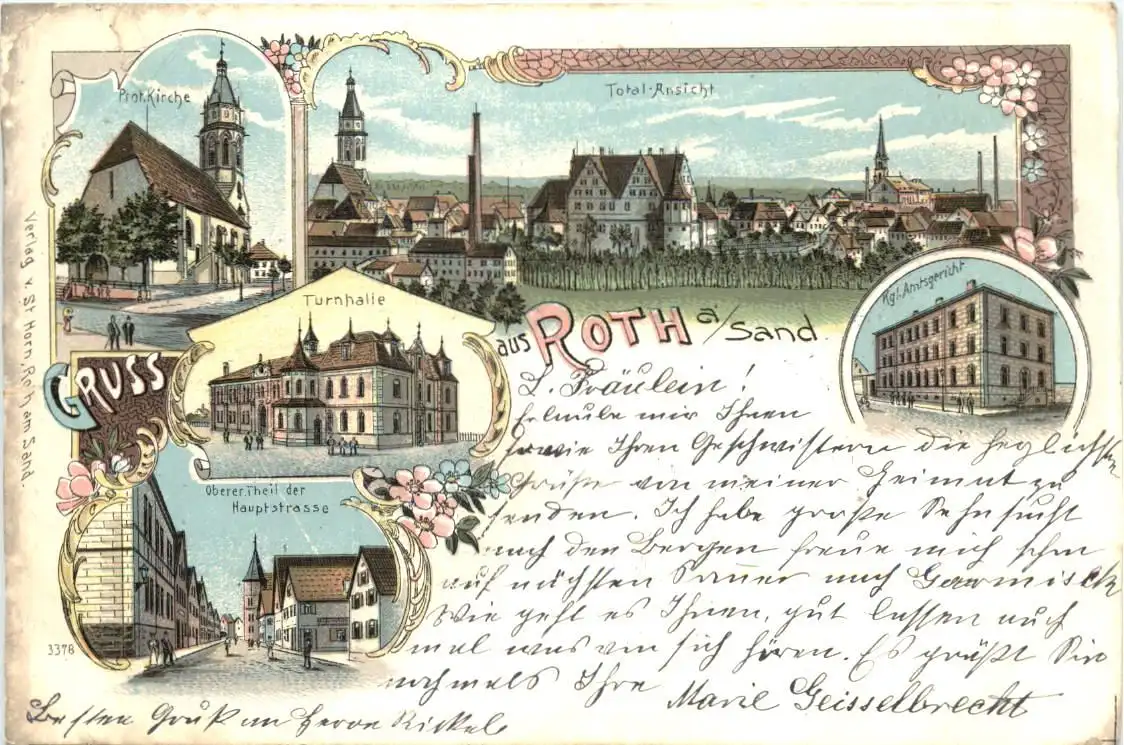 Prot. Kirche
Total-Ansicht
Kgl. Amtsgericht
Turnhalle
GRUSS aus ROTH a/Sand.
Oberer Theil der
Hauptstrasse
Verlag v. St. Horn, Roth am Sand.
3378
L. Fräulein!
Erlaube mir Ihnen
sowie Ihren Geschwistern die herzlichsten
Grüße von meiner Heimat zu
senden. Ich habe große Sehnsucht
nach den Bergen freue mich schon
auf nächsten Som̅er nach Garmisch
Wie geht es Ihnen, gut lassen auch
mal was von sich hören. Es grüßt Sie
nochmals Ihre Marie Geisselbrecht
Besten Gruß an Herrn